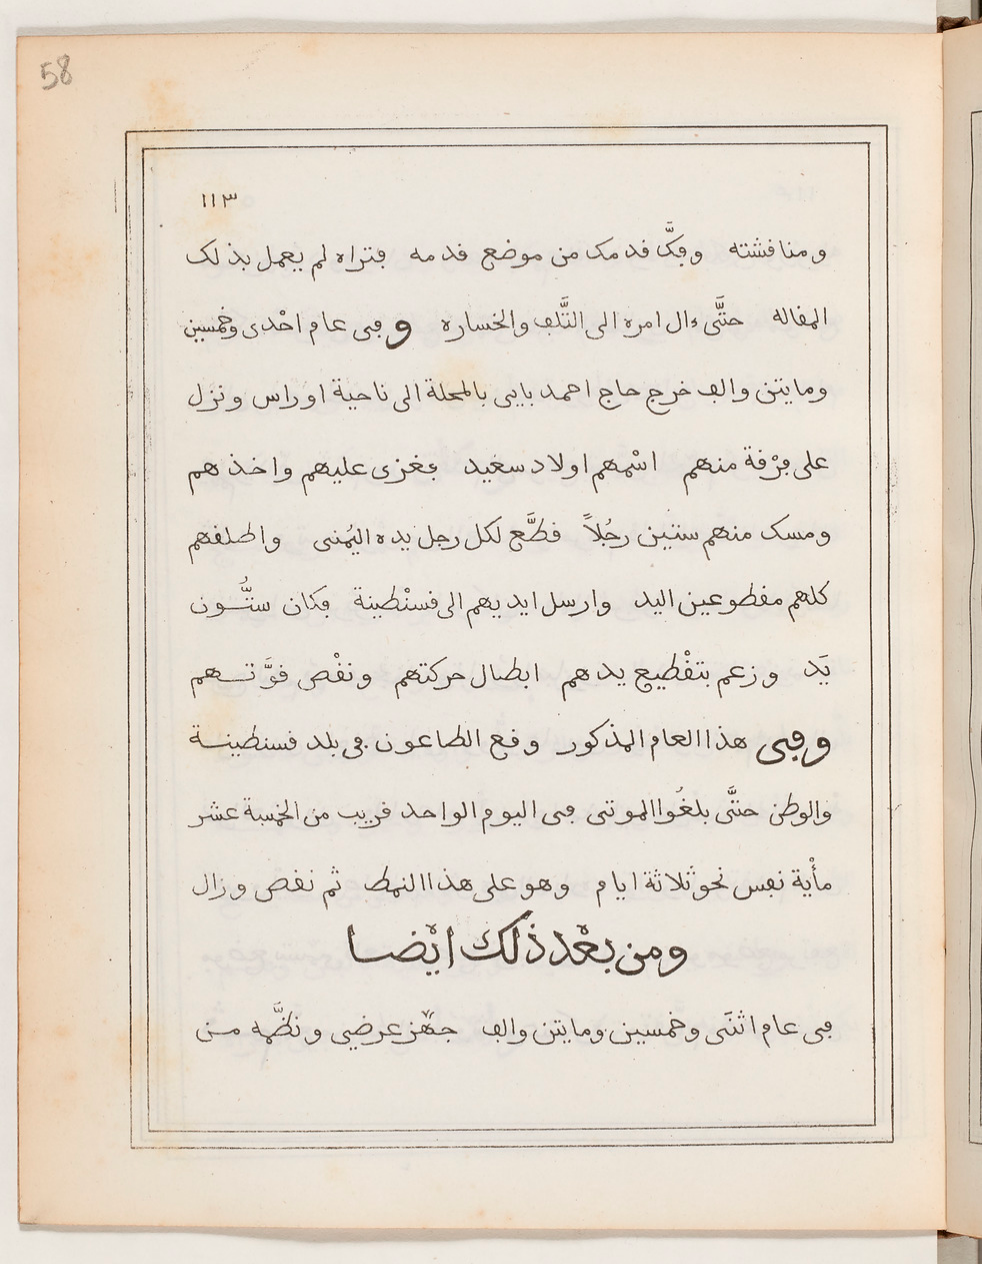 58
١١٣
ومنافشته وفِكَّ فدمك من موضع فدمه ڢتراه لم يعمل بذلك
المفاله حتَّى ءال امره الى التَّلڢ والخساره وڢى عام احْدى وخمسين
ومايتن والڢ خرج حاج احمد بايى بالمحلة الى ناحية اوراس ونزل
على ڢرْفة منهم اسْمهم اولاد سعيد ڢغزى عليهم واخذهم
ومسك منهم ستين رجُلاً فطَّع لكل رجل يده اليُمنى واطلفهم
كلهم مفطوعين اليد وارسل ايديهم الى فسنْطينة ڢكان ستُّون
يَد وزعم بتفْطيع يدهم ابطال حركتهم ونفْص فوَّتهم
وڢى هذا العام المذكور وفع الطاعون ڢى بلد فسنطينة
والوطن حتَّى بلغُوا الموتى ڢى اليوم الواحد فريب من الخمسة عشر
مأْية نڢس نحو ثلاثة ايام وهو على هذا النمط ثم نفص وزال
ومن بعْد ذلك ايْضا
ڢى عام اثنَى وخمسين ومايتن والڢ جهّز عرضي ونظَّمه من